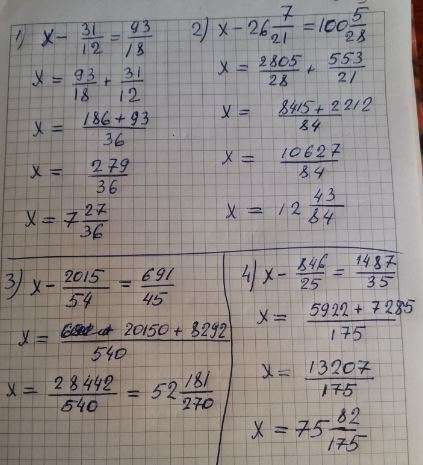 1) x - 31/12 = 93/18
x = 93/18 + 31/12
x = (186 + 93)/36
x = 279/36
x = 7 27/36
2) x - 26 7/21 = 100 5/28
x = 2805/28 + 553/21
x = (8415 + 2212)/84
x = 10627/84
x = 12 43/84
3) x - 2015/54 = 691/45
x = (20150 + 8292)/540
x = 28442/540 = 52 181/270
4) x - 846/25 = 1487/35
x = (5922 + 7285)/175
x = 13207/175
x = 75 82/175